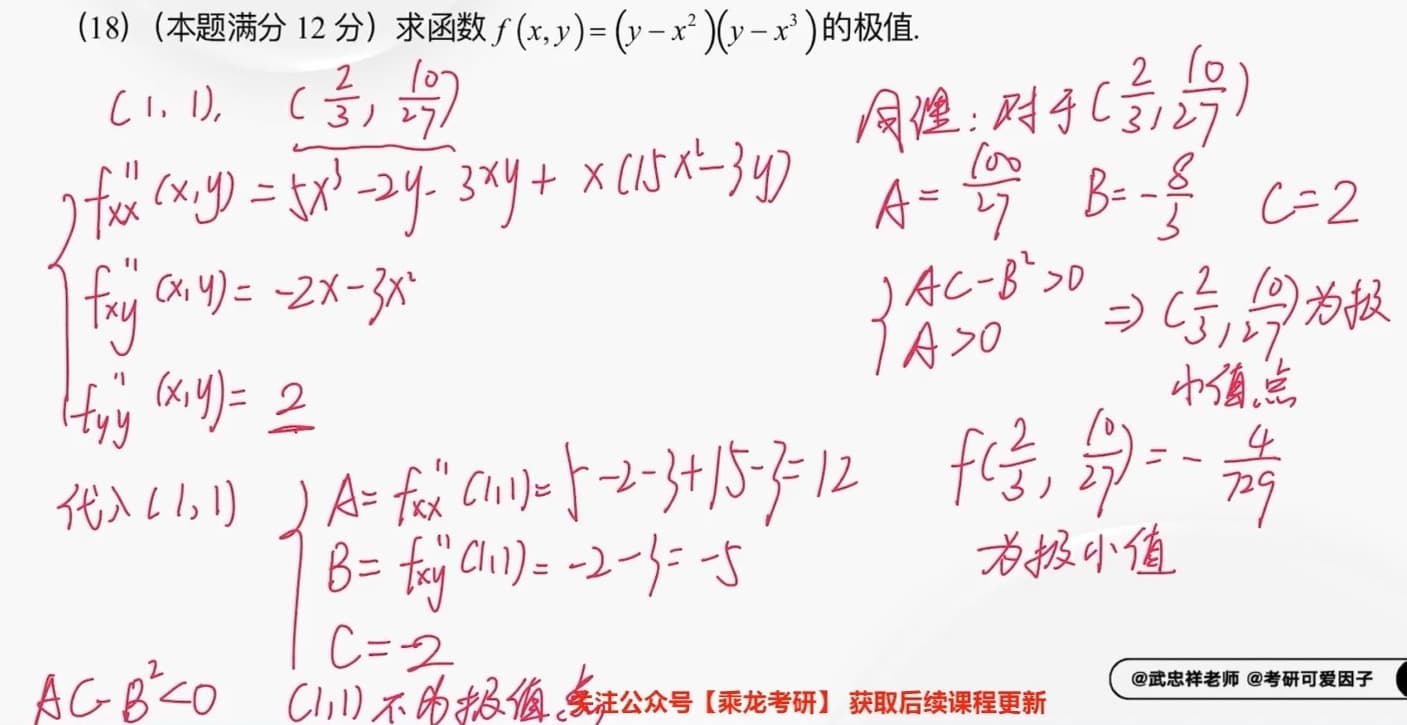 (18)(本题满分 12 分)求函数 f(x,y)=(y−x²)(y−x³)的极值.
(1,1), (2/3, 10/27)
f''xx(x,y) = 5x³-2y-3xy+x(15x²-3y)
f''xy(x,y) = -2x-3x²
f''yy(x,y) = 2
代入(1,1)
A = f''xx(1,1) = 5-2-3+15-3=12
B = f''xy(1,1) = -2-3=-5
C = -2
AC-B²<0 (1,1)不为极值点
同理:对于(2/3, 10/27)
A = 100/27 B = -8/3 C = 2
AC-B²>0
A>0
⇒ (2/3, 10/27)为极
小值点
f(2/3, 10/27) = -4/729
为极小值
@武忠祥老师 @考研可爱因子
关注公众号【乘龙考研】 获取后续课程更新